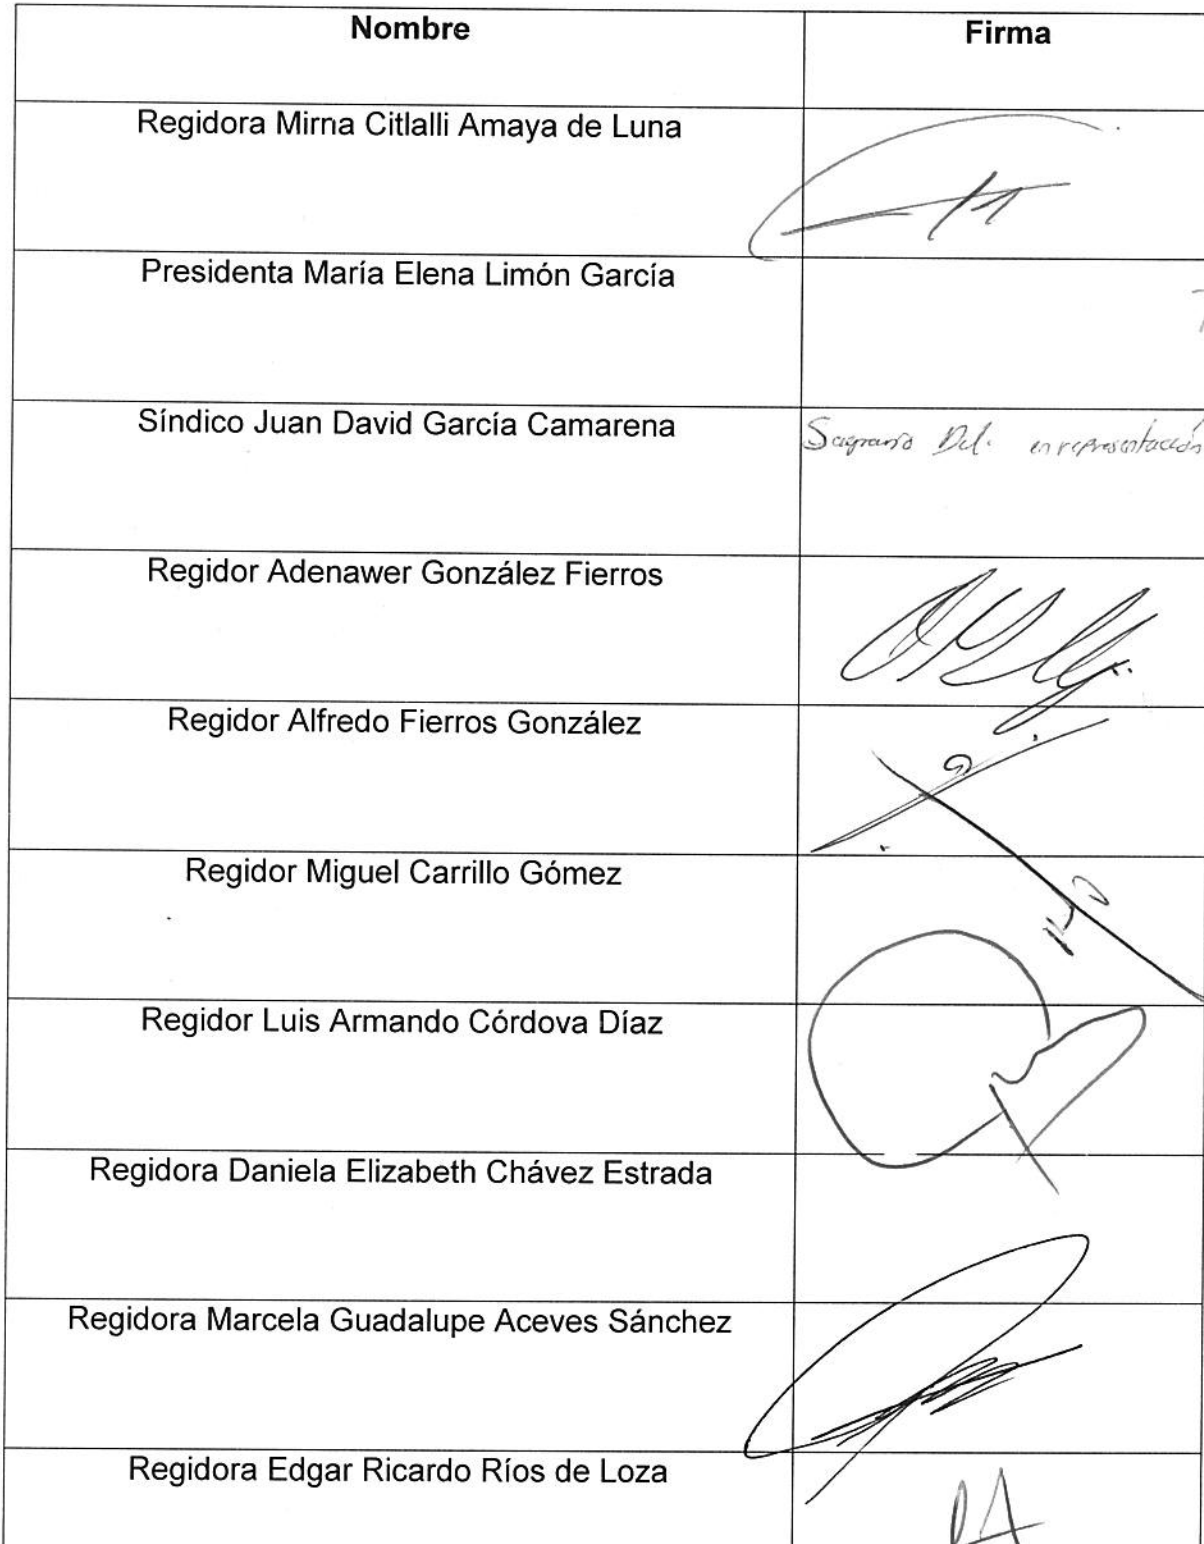 Nombre Firma
Regidora Mirna Citlalli Amaya de Luna
Presidenta María Elena Limón García
Síndico Juan David García Camarena
en representación
Regidor Adenawer González Fierros
Regidor Alfredo Fierros González
Regidor Miguel Carrillo Gómez
Regidor Luis Armando Córdova Díaz
Regidora Daniela Elizabeth Chávez Estrada
Regidora Marcela Guadalupe Aceves Sánchez
Regidora Edgar Ricardo Ríos de Loza